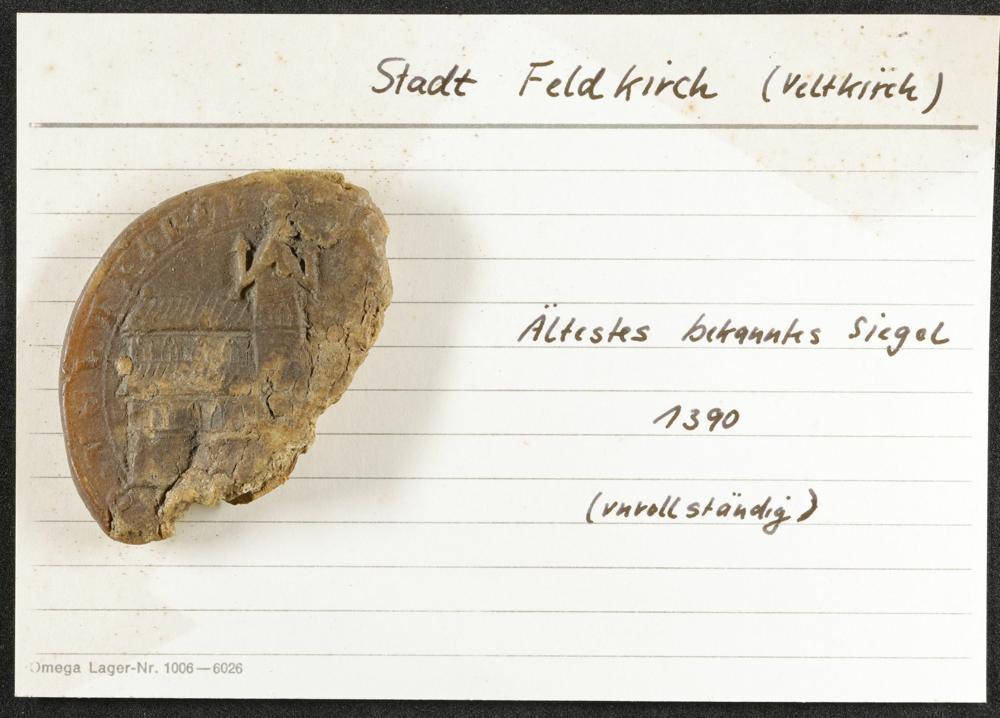 Stadt Feldkirch (Veltkirch)
Ältestes bekanntes Siegel
1390
(unvollständig)
Omega Lager-Nr. 1006—6026